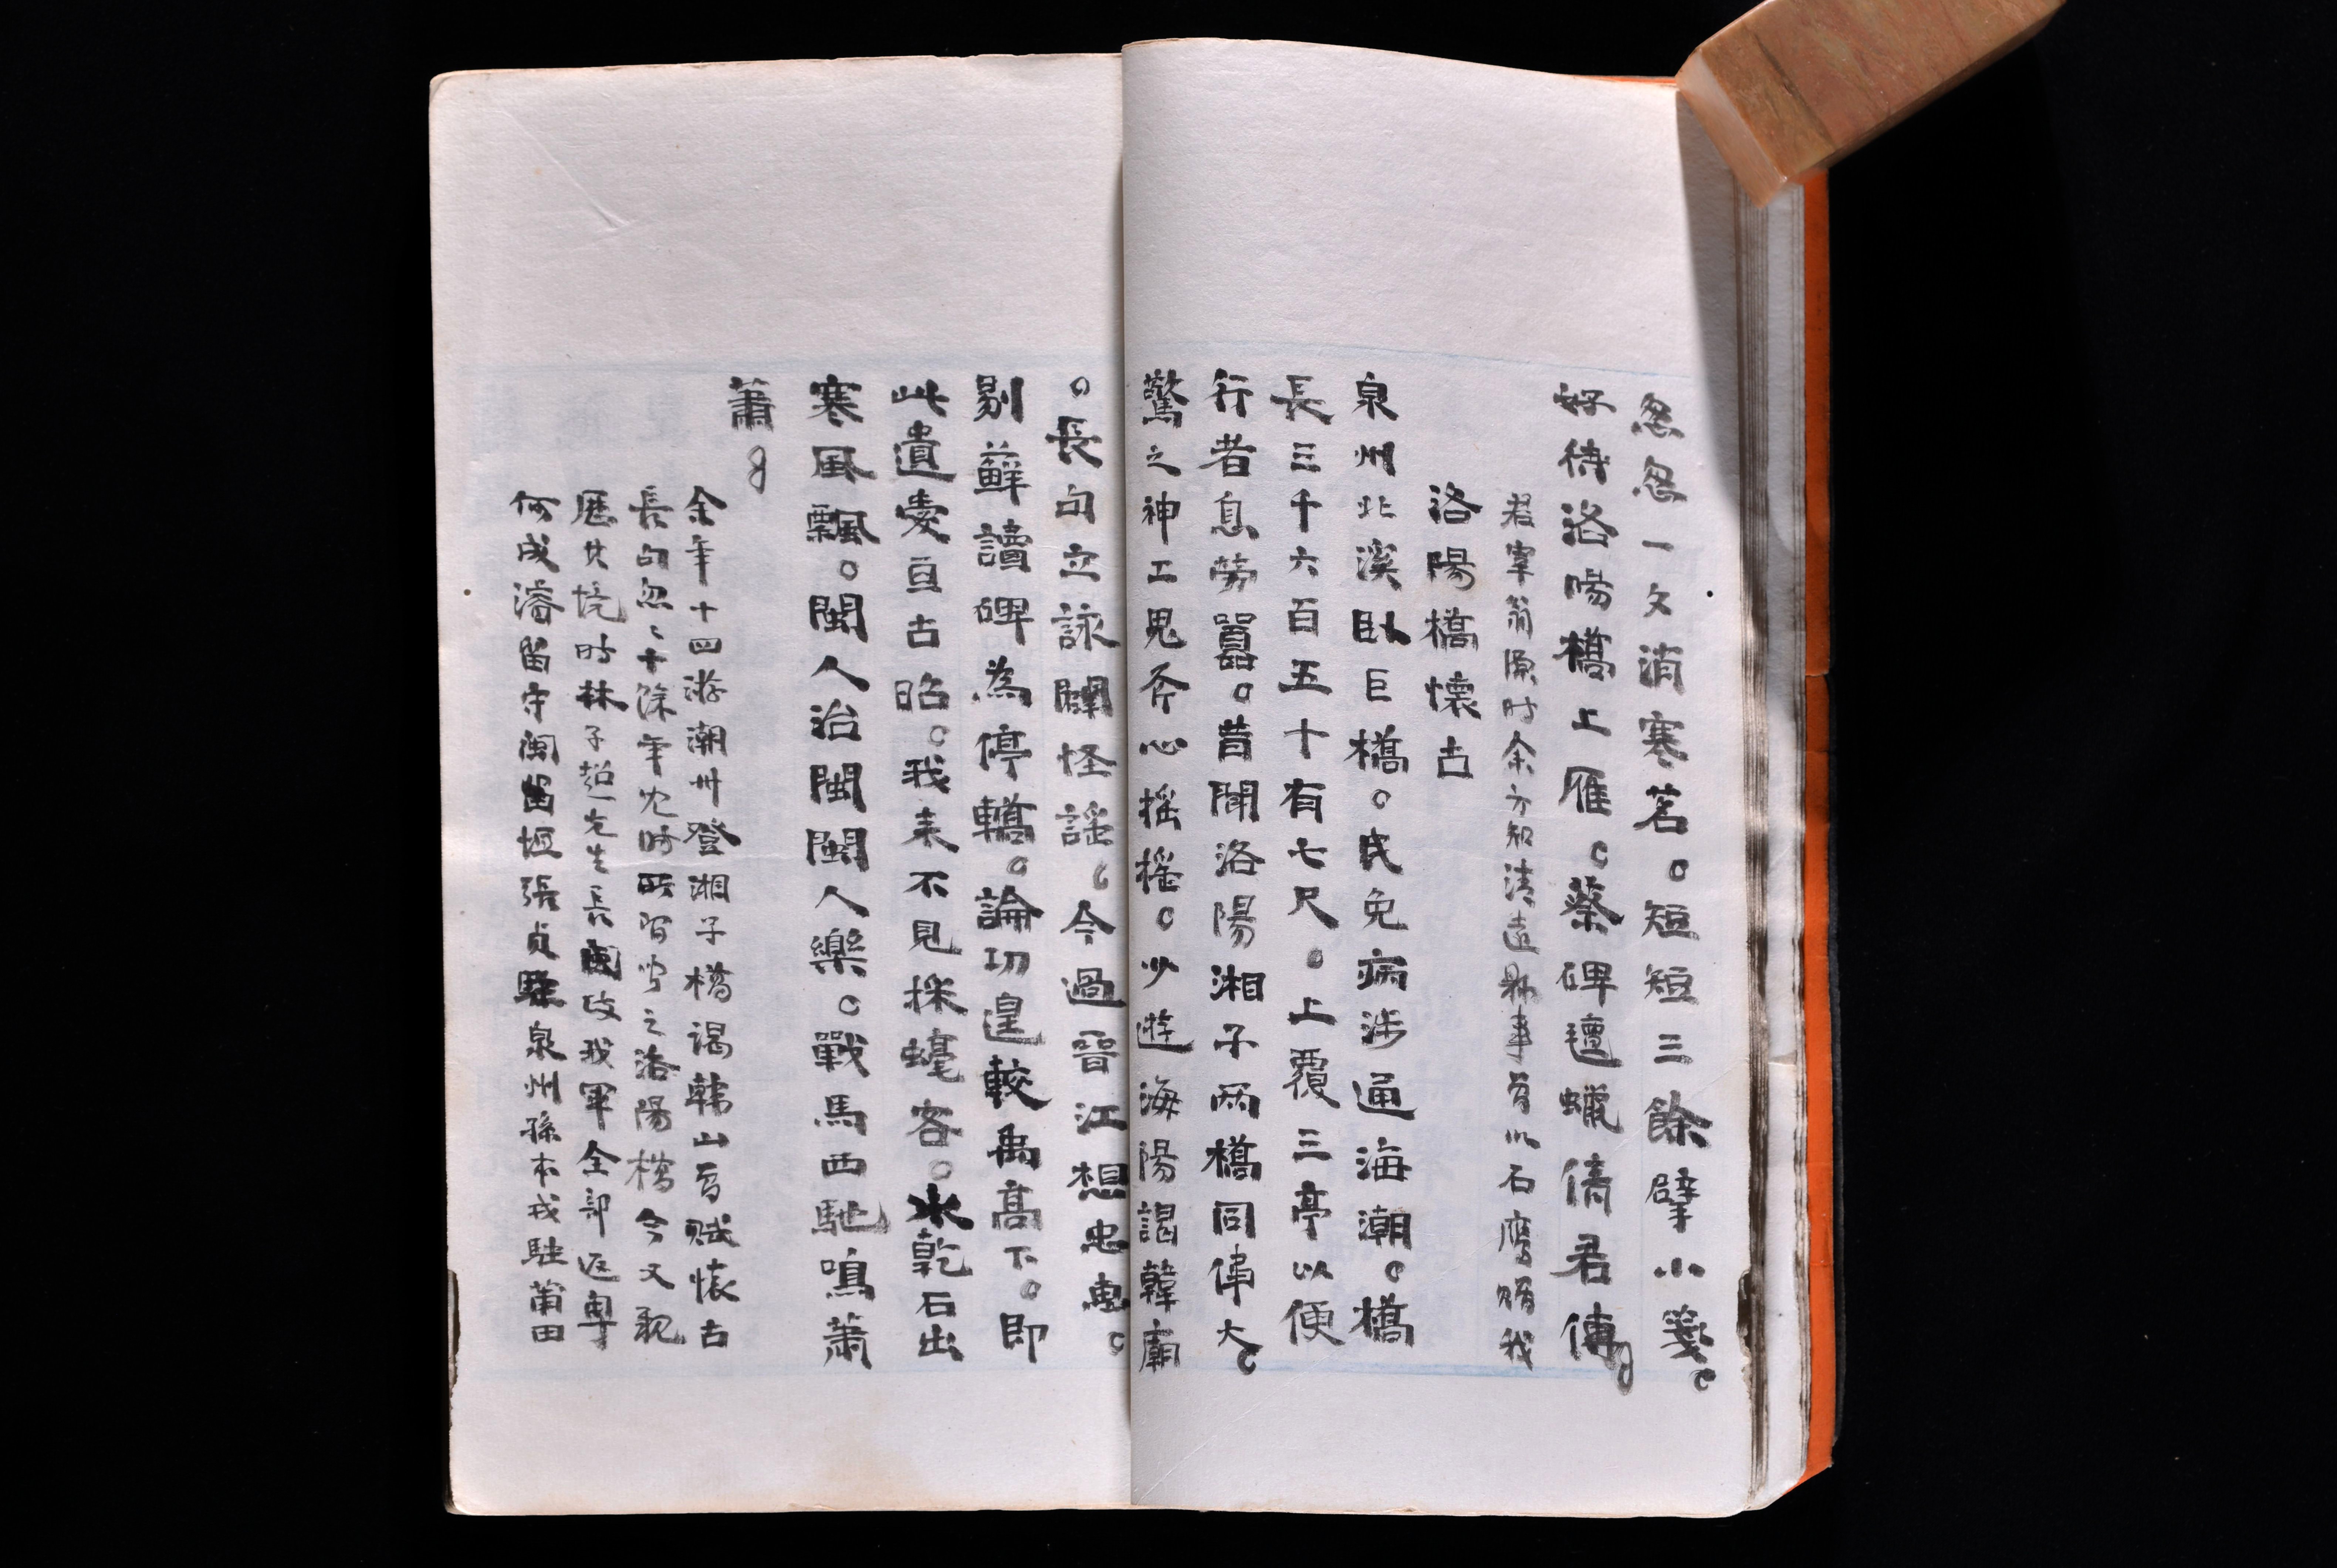 忽忽一文消寒茗。短短三餘擘小箋。
好待洛陽橋上雁。蔡碑氊蠟倩君傳
君宰翁源时余方知清遠縣事曾以石鹰贈我
洛陽橋懷古
泉州北溪臥巨橋。民免病涉通海潮。橋
長三千六百五十有七尺。上覆三亭以便
行者息勞囂。昔聞洛陽湘子兩橋同偉大。
驚之神工鬼斧心搖搖。少遊海陽謁韓廟
。長句空詠闢怪謠。今過晉江想忠惠。
剔蘚讀碑為停轎。論功遑較禹高下。即
此遺愛亘古昭。我来不見採蠔客。水乾石出
寒風飄。閩人治閩閩人樂。戰馬西馳鳴蕭
蕭
余年十四游潮州登湘子橋謁韓山曾賦懷古
長句忽〻十馀年尔时所習聞之洛陽橋今又親
歷其境时林子超先生長閩政我軍全部返粤
何成濬留守閩留恆張貞駐泉州孫本戎駐莆田